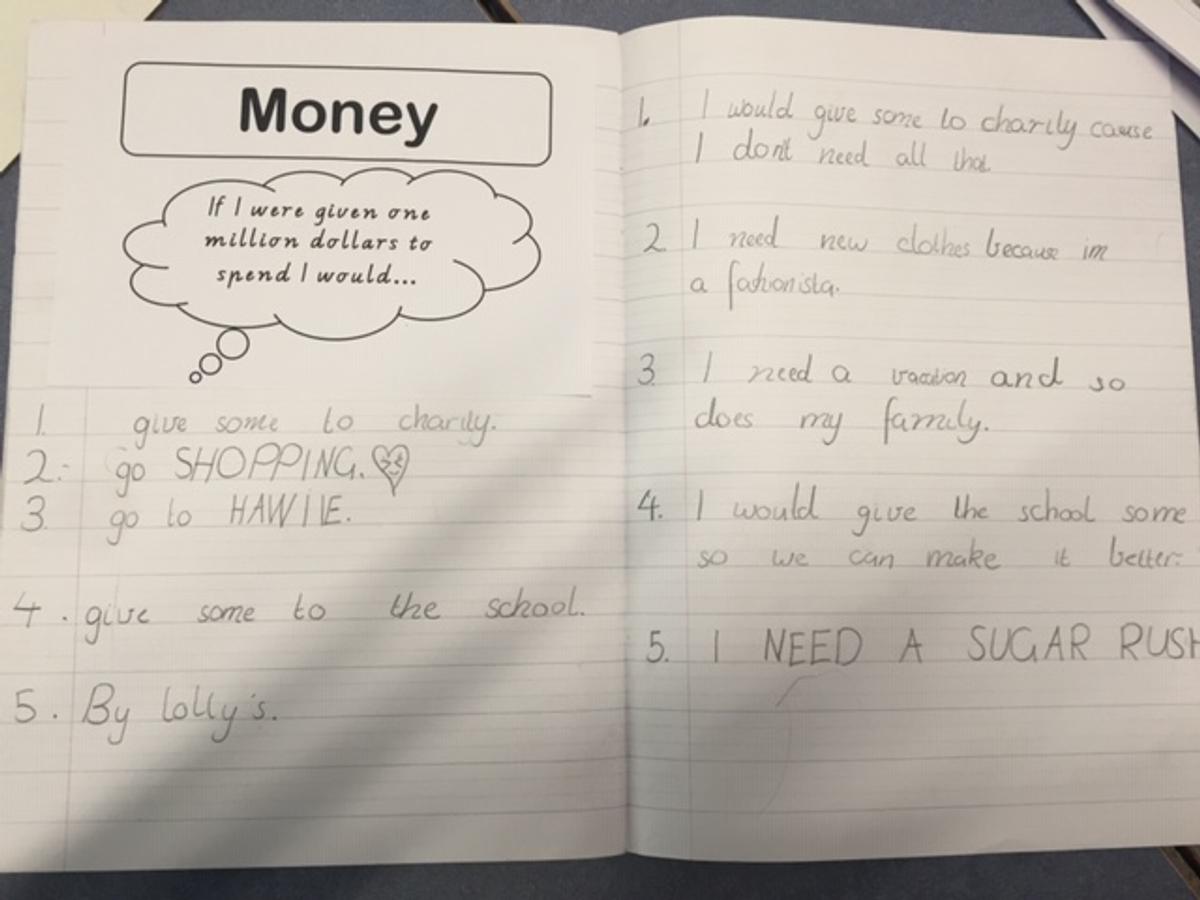 Money
If I were given one
million dollars to
spend I would...
1. give some to charity.
2. go SHOPPING.
3. go to HAWIIE.
4. give some to the school.
5. By lolly's.
1. I would give some to charity cause
I don't need all that.
2 I need new clothes because im
a fashionista.
3. I need a vacation and so
does my family.
4. I would give the school some
so we can make it better.
5. I NEED A SUGAR RUSH